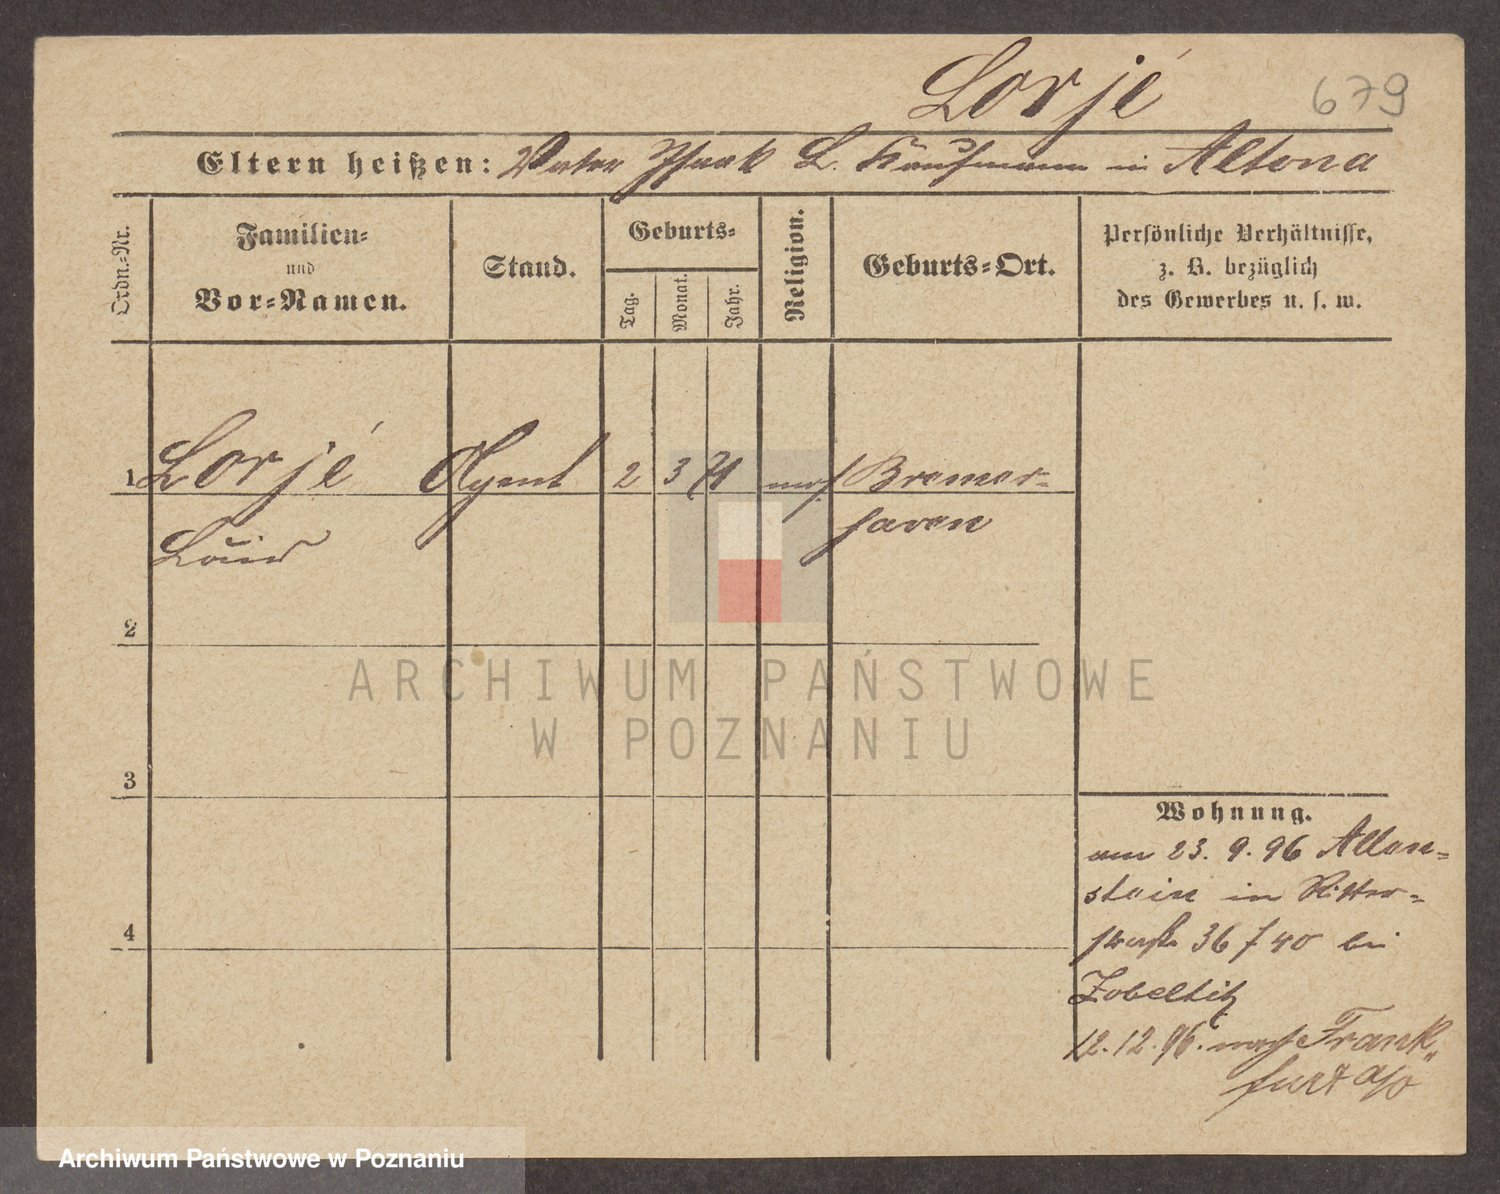 Lorjé 679
Eltern heißen: Vater Isaak L. Kaufmann in Altona
Ordn.-Nr.
Familien-
und
Vor-Namen.
Stand.
Geburts-
Tag.
Monat.
Jahr.
Religion.
Geburts-Ort.
Persönliche Verhältnisse,
z. B. bezüglich
des Gewerbes u. s. w.
1 Lorjé Agent 2 3 71 mos Bremer-
haven
Louis
2
3
4
Wohnung.
am 23. 9. 96 Allen-
stein in Ritter-
straße 36/40 bei
Zobeltitz
12.12.96. nach Frank-
furt a/o
ARCHIWUM PAŃSTWOWE
W POZNANIU
Archiwum Państwowe w Poznaniu